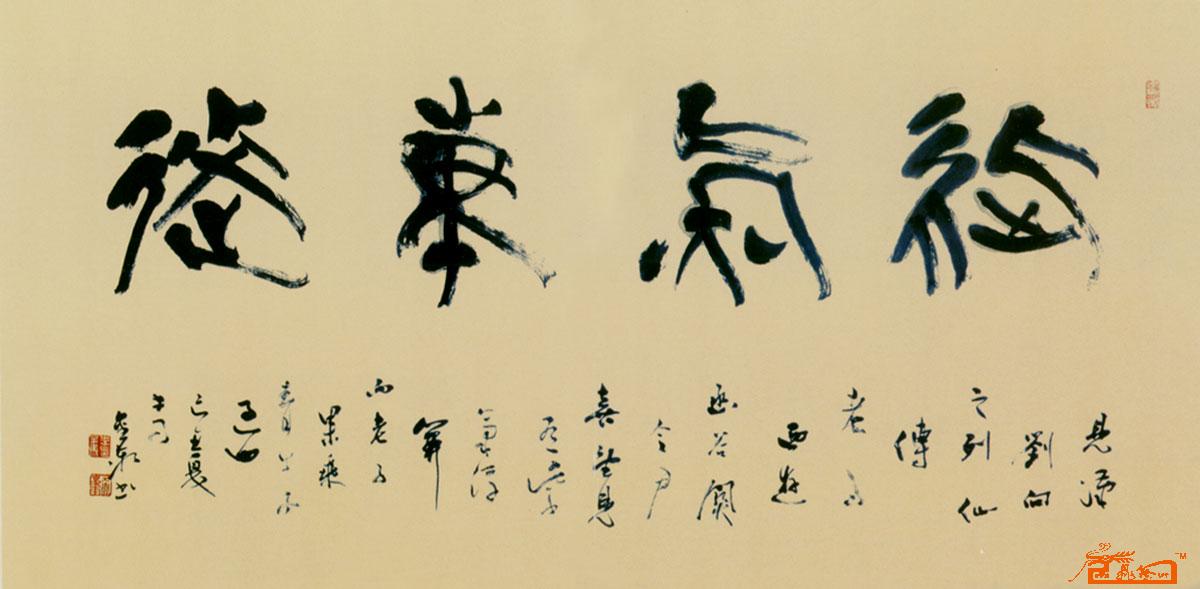 紫氣東來
見漢
劉向
之列仙
傳
老子
西遊
函谷關
令尹
喜望見
有紫
氣浮
關
而老子
果乘
青牛而
過也
己丑夏
書